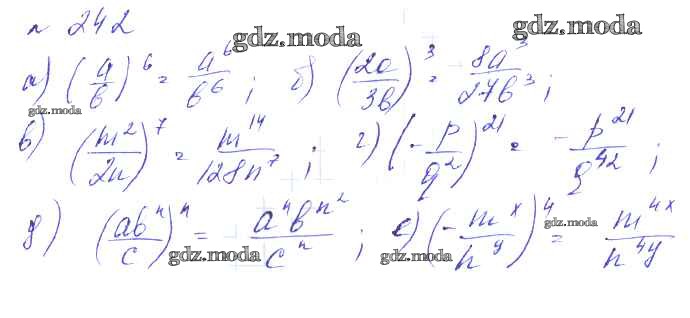 № 242
gdz.moda gdz.moda
а) (a/b)^6 = a^6/b^6 ; б) (2a/3b)^3 = 8a^3/27b^3 ;
gdz.moda
в) (m^2/2n)^7 = m^14/128n^7 ; г) (-p/q^2)^21 = -p^21/q^42 ;
д) (ab^n/c)^n = a^n b^n^2/c^n ; е) (-m^x/n^y)^4 = m^4x/n^4y
gdz.moda
gdz.moda gdz.moda gdz.moda